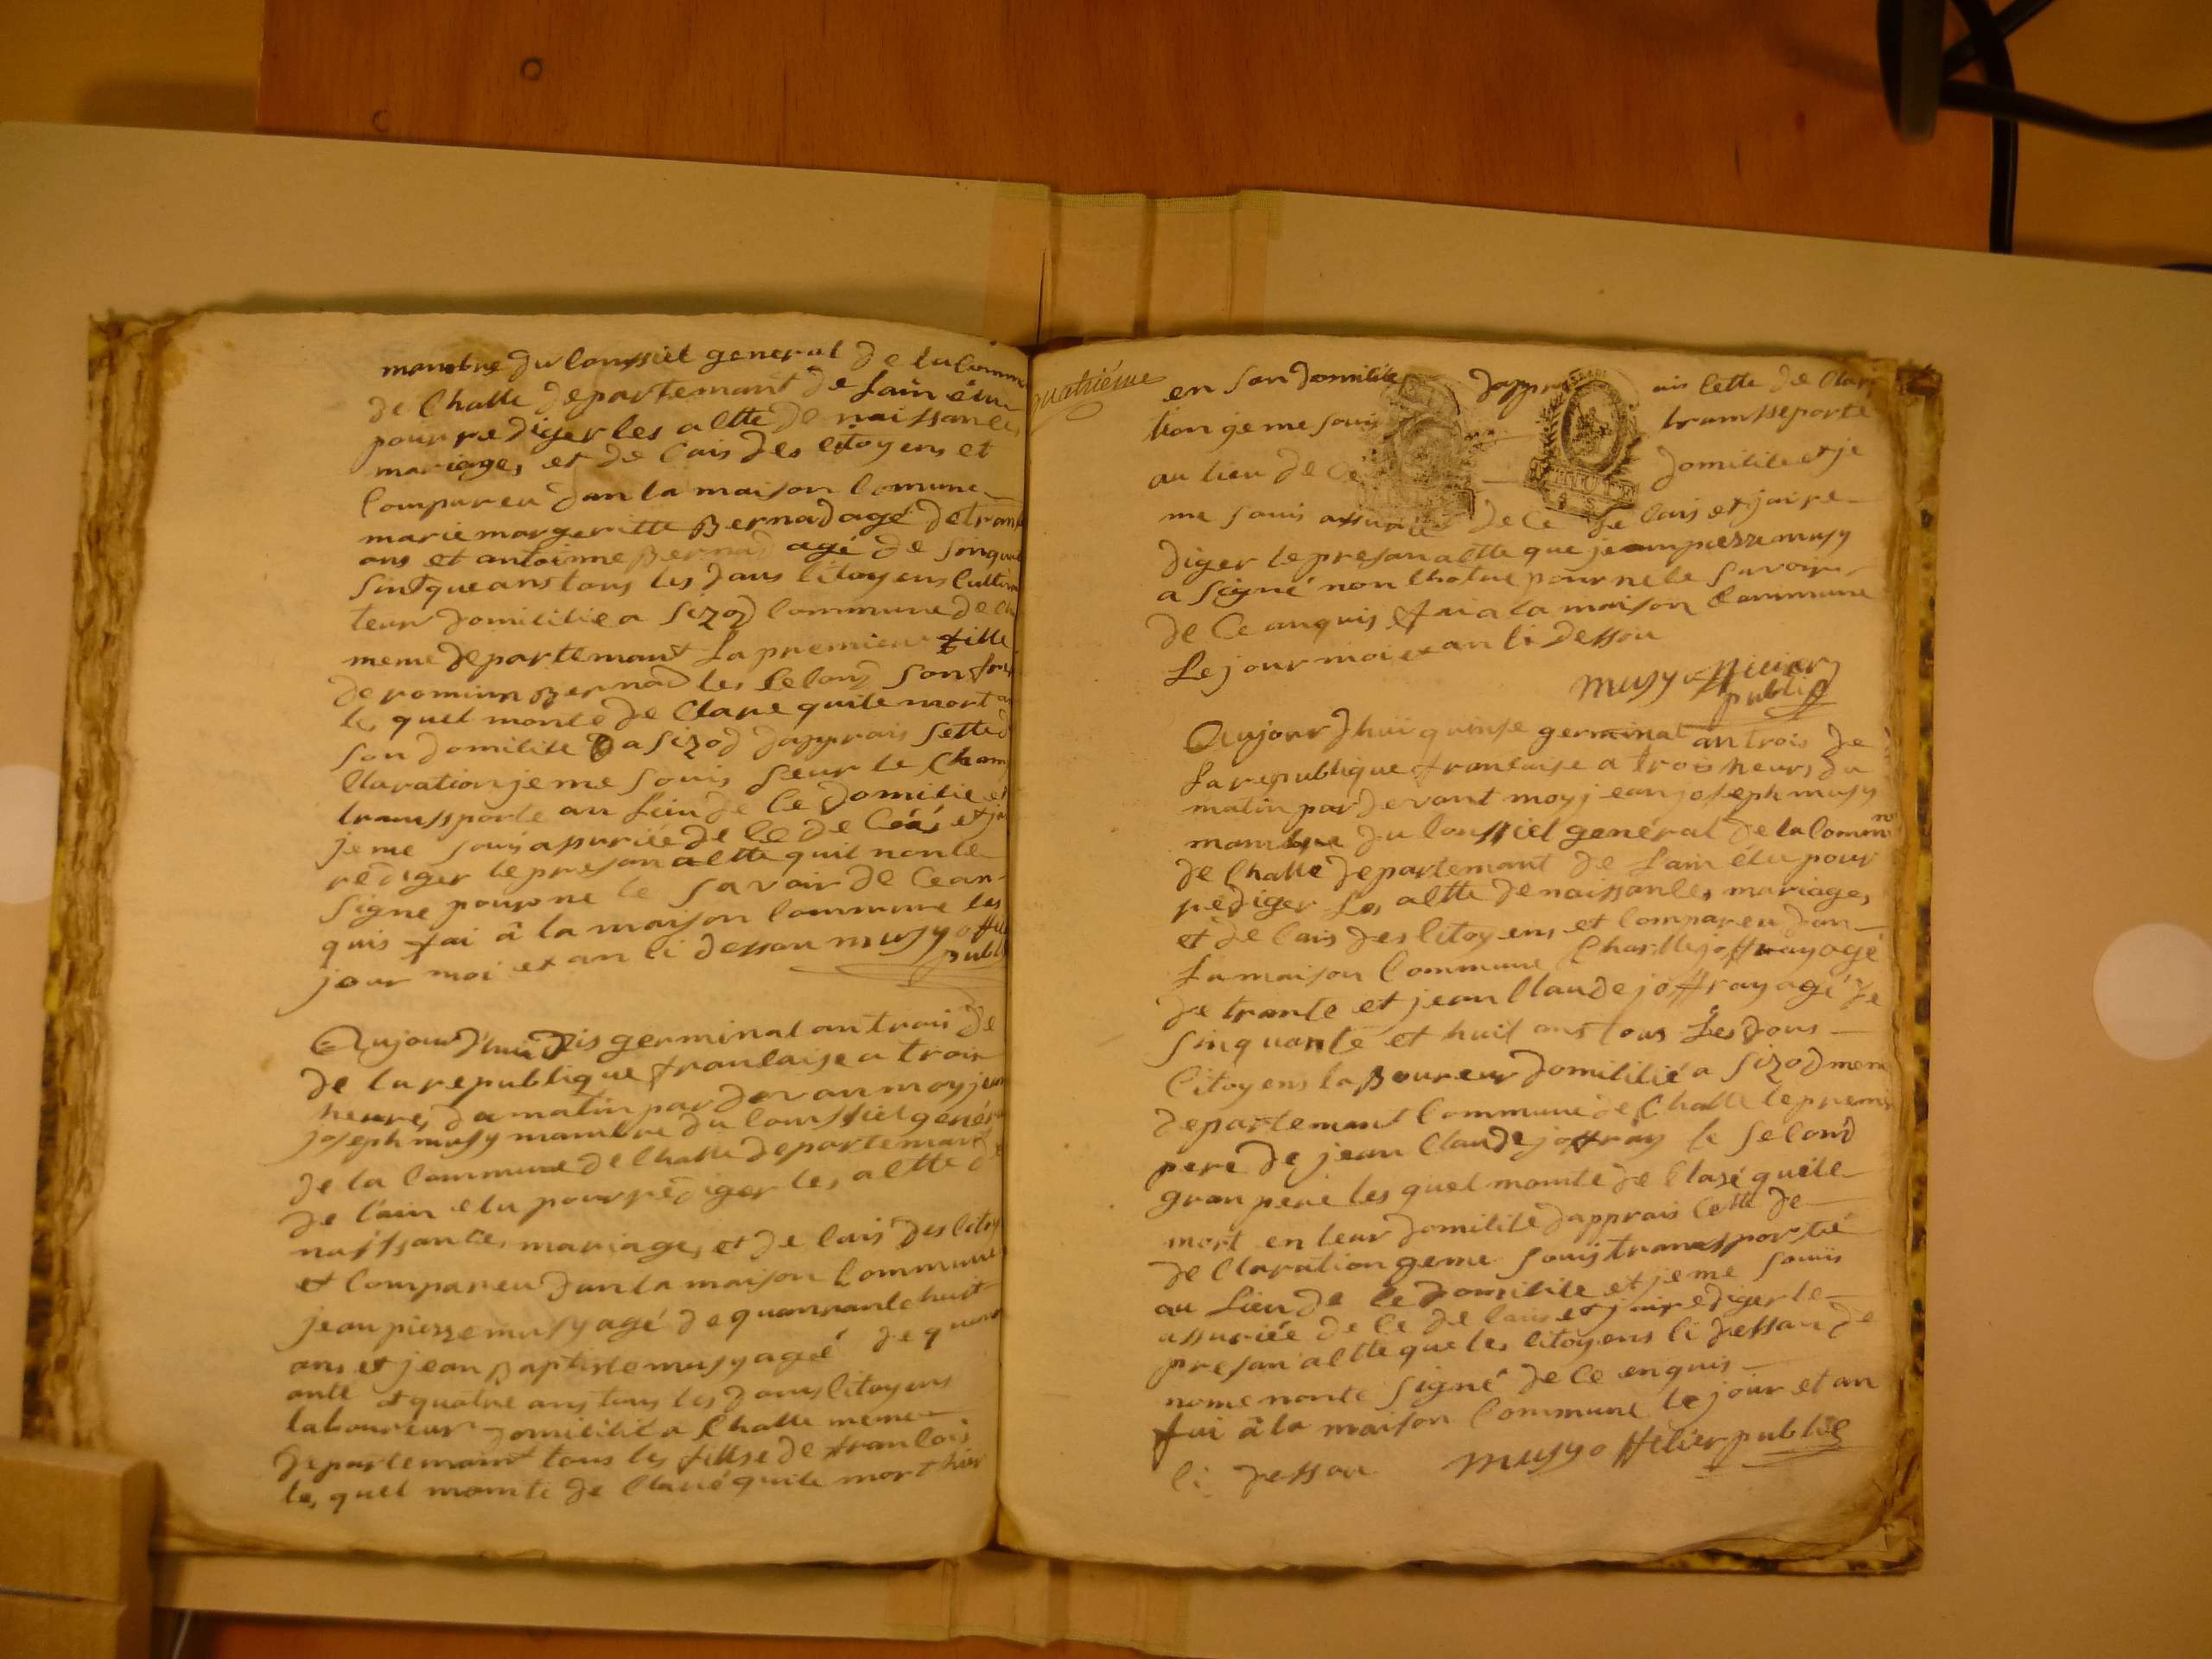 mambre du conssiel general de la comm
de challe departemant de lain élu
pour rediger les altte de naissances
mariages et de cais des citoyens et
compareu dan la maison comune
marie margeritte Bernad agé de trante
ans et antoinne Bernad agé de sinquante
sintque ans tous les daus citoyens cultiva
teur domicilié a sizod commune de cha
meme departemant la premiere fille
de romiun Bernad les selond son frer
les quel monte de clare quile mort a
son domicile a sizod dapprais sette d
claration je me souis seur le cham
transsporte au lieu de ce domicile et
je me souis assuriée de ce de céas et jai
rédiger le presan altte quil nonte
signe pour ne le savoir de cean
quis fai à la maison commune les
jour moi et an ci dessou musy offi
publi
Aujourd'hui dis germinal an trois de
de la republique francaise a trois
heures da matin par devan moy jean
joseph musy mambre du conssiel généra
de la commune de challe departemant
de l'ain elu pour rédiger les altte de
naissances mariages et de cais des citoy
et compareu dan la maison commune
jean pierre musy agé de quarante huit
ans et jean Baptiste musy agé de quar
ante et quatre ans tous les daus citoyens
laboureur domicilié a challe meme
departemant tous les fillse de francois
les quel monte de claré quile mort hier
quatriéme
en son domicile dappr ais cette de clar
tion je me souis transseporte
au lieu de ce domicile et je
me souis assurié de ce de cais et jai re
diger le presan altte que jean pierre musy
a signé non lhotre pour ne le savoir
de ce anquis fai a la maison commune
le jour moi et an ci dessou
musy officier
public
Aujour dhui quinse germinal an trois de
la republique francaise a trois heures du
matin par devant moy jean joseph musy
mambre du conssiel genéral de la comm
de challe departemant de lain élu pour
rédiger les altte de naissances mariages
et de cais des citoyens et compareu dan
la maison commune Charlle joffray agé
de trante et jean claude joffray agé de
sinquante et huit ans tous les dous
citoyens laBoureur domicilié a sizod mem
departemant commune de challe le premie
pere de jean claude joffray le second
gran pere les quel monte de claré quile
mort en leur domicile dapprais cette de
de claration geme souis transsporté
au lieu de ce domicile et je me souis
assuriée de ce de cais et jai rediger le
presan altte que les citoyens ci dessou de
nome nonte signé de ce enquis
fai à la maison commune le jour et an
ci dessou musy officier public